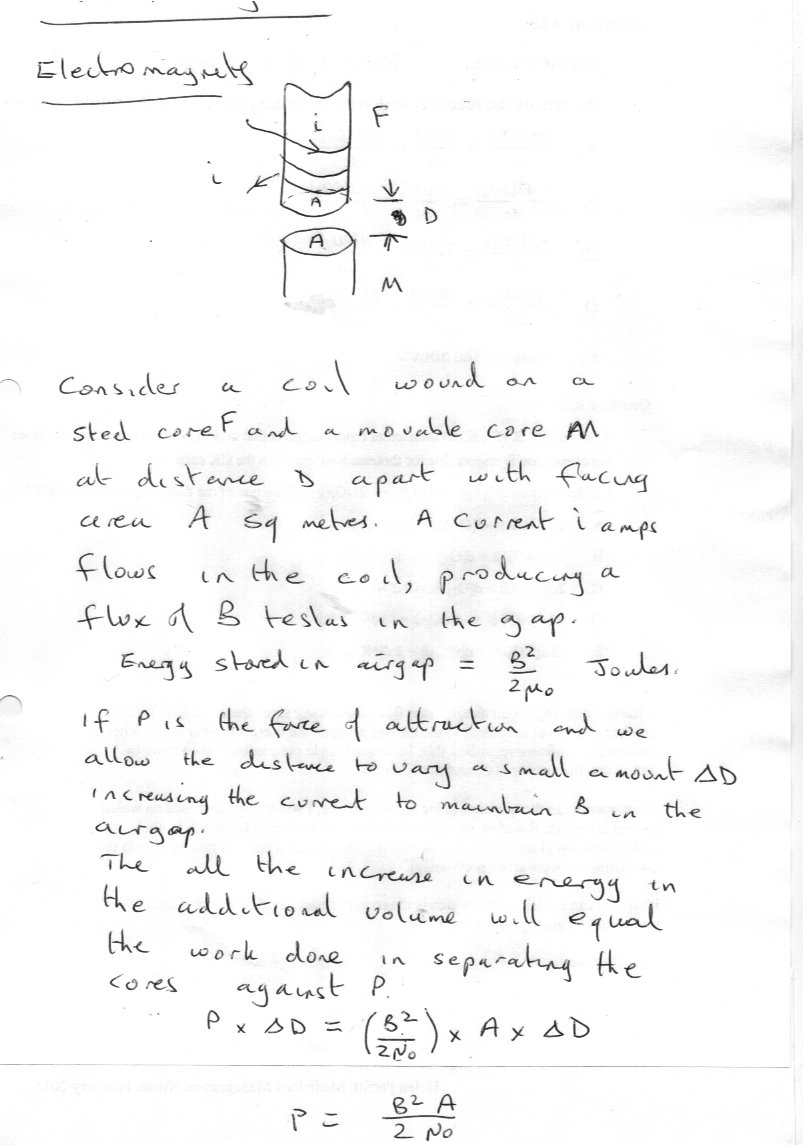 Electromagnets
i
F
i
A
D
A
M
Consider a coil wound on a
steel core F and a movable core M
at distance D apart with facing
area A sq metres. A current i amps
flows in the coil, producing a
flux of B teslas in the gap.
Energy stored in airgap = B²/2μ₀ Joules.
If P is the force of attraction and we
allow the distance to vary a small amount ΔD
increasing the current to maintain B in the
airgap.
The all the increase in energy in
the additional volume will equal
the work done in separating the
cores against P.
P x ΔD = (B²/2μ₀) x A x ΔD
P = B² A/2 μ₀